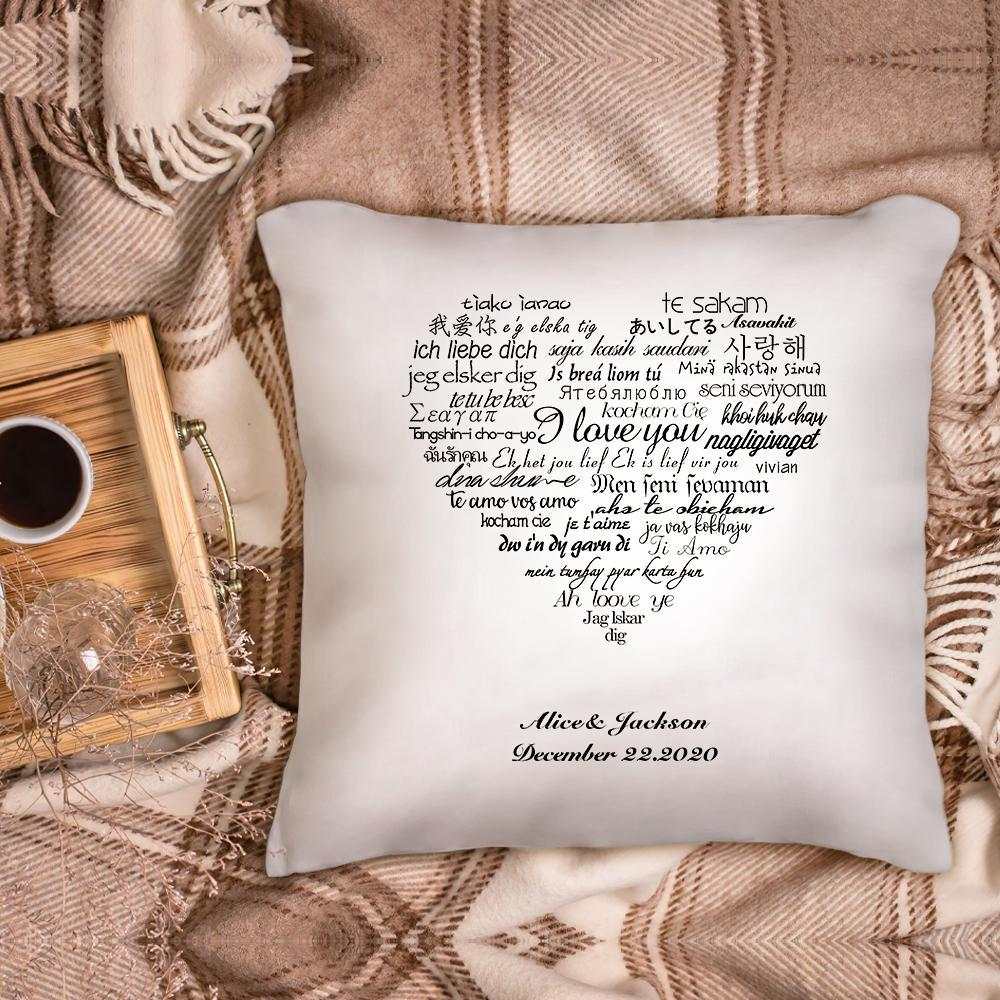 tiako ianao te sakam
我爱你 e'g elska tig あいしてる Asavakit
ich liebe dich saja kasih saudari 사랑해
jeg elsker dig Is breá liom tú Minä rakastan sinua
te tu be besc Ятебялюблю seni seviyorum
Σεαγαπ kocham Cię khoi huk chau
Tangshin-i cho-a-yo I love you nagligivaget
ฉันรักคุณ Ek het jou lief Ek is lief vir jou vivian
dua shume Men seni sevaman
te amo vos amo aho te obicham
kocham cie je t'aime ja vas kokhaju
dw i'n dy garu di Ti Amo
mein tumhay pyar karta hun
Ah loove ye
Jag lskar
dig
Alice& Jackson
December 22.2020